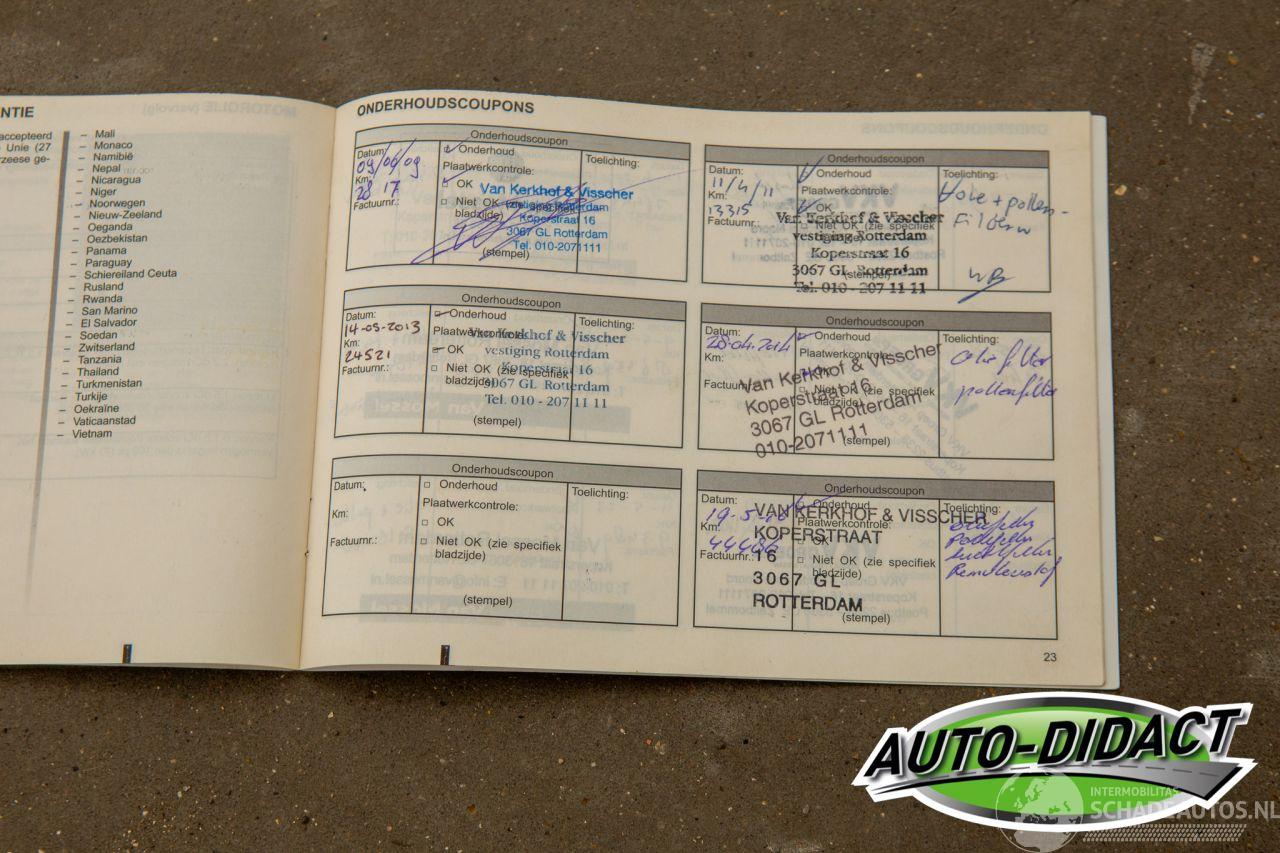 NTIE
accepteerd
Unie (27
rzeese ge-
– Mali
– Monaco
– Namibië
– Nepal
– Nicaragua
– Niger
– Noorwegen
– Nieuw-Zeeland
– Oeganda
– Oezbekistan
– Panama
– Paraguay
– Schiereiland Ceuta
– Rusland
– Rwanda
– San Marino
– El Salvador
– Soedan
– Zwitserland
– Tanzania
– Thailand
– Turkmenistan
– Turkije
– Oekraïne
– Vaticaanstad
– Vietnam
ONDERHOUDSCOUPONS
Onderhoudscoupon
Datum:
09/06/09
Km:
2817
Factuurnr.:
Onderhoud
Plaatwerkcontrole:
OK
Niet OK (zie specifiek
bladzijde)
(stempel)
Toelichting:
Van Kerkhof & Visscher
vestiging Rotterdam
Koperstraat 16
3067 GL Rotterdam
Tel. 010-2071111
Onderhoudscoupon
Datum:
11/4/11
Km:
13315
Factuurnr.:
Onderhoud
Plaatwerkcontrole:
OK
Niet OK (zie specifiek
bladzijde)
(stempel)
Van Kerkhof & Visscher
vestiging Rotterdam
Koperstraat 16
3067 GL Rotterdam
Tel. 010 - 207 11 11
Toelichting:
+ pollen-
Filter
Onderhoudscoupon
Datum:
14-05-2013
Km:
24521
Factuurnr.:
Onderhoud
Plaatwerkcontrole:
OK
Niet OK (zie specifiek
bladzijde)
(stempel)
Toelichting:
Van Kerkhof & Visscher
vestiging Rotterdam
Koperstraat 16
3067 GL Rotterdam
Tel. 010 - 207 11 11
Onderhoudscoupon
Datum:
28-04-2014
Km:
Factuurnr.:
Onderhoud
Plaatwerkcontrole:
OK
Niet OK (zie specifiek
bladzijde)
(stempel)
Van Kerkhof & Visscher
Koperstraat 16
3067 GL Rotterdam
010-2071111
Toelichting:
olie filter
pollenfilter
Onderhoudscoupon
Datum:
Km:
Factuurnr.:
Onderhoud
Plaatwerkcontrole:
OK
Niet OK (zie specifiek
bladzijde)
(stempel)
Toelichting:
Onderhoudscoupon
Datum:
19-5-16
Km:
44486
Factuurnr.:
Onderhoud
Plaatwerkcontrole:
OK
Niet OK (zie specifiek
bladzijde)
(stempel)
VAN KERKHOF & VISSCHER
KOPERSTRAAT
16
3067 GL
ROTTERDAM
Toelichting:
oliefilter
pollenfilter
luchtfilter
Remvloeistof
23
AUTO-DIDACT
INTERMOBILITAS
SCHADEAUTOS.NL